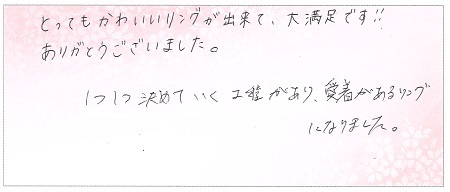 とってもかわいいリングが出来て、大満足です!!
ありがとうございました。
1つ1つ決めていく工程があり、愛着があるリング
になりました。